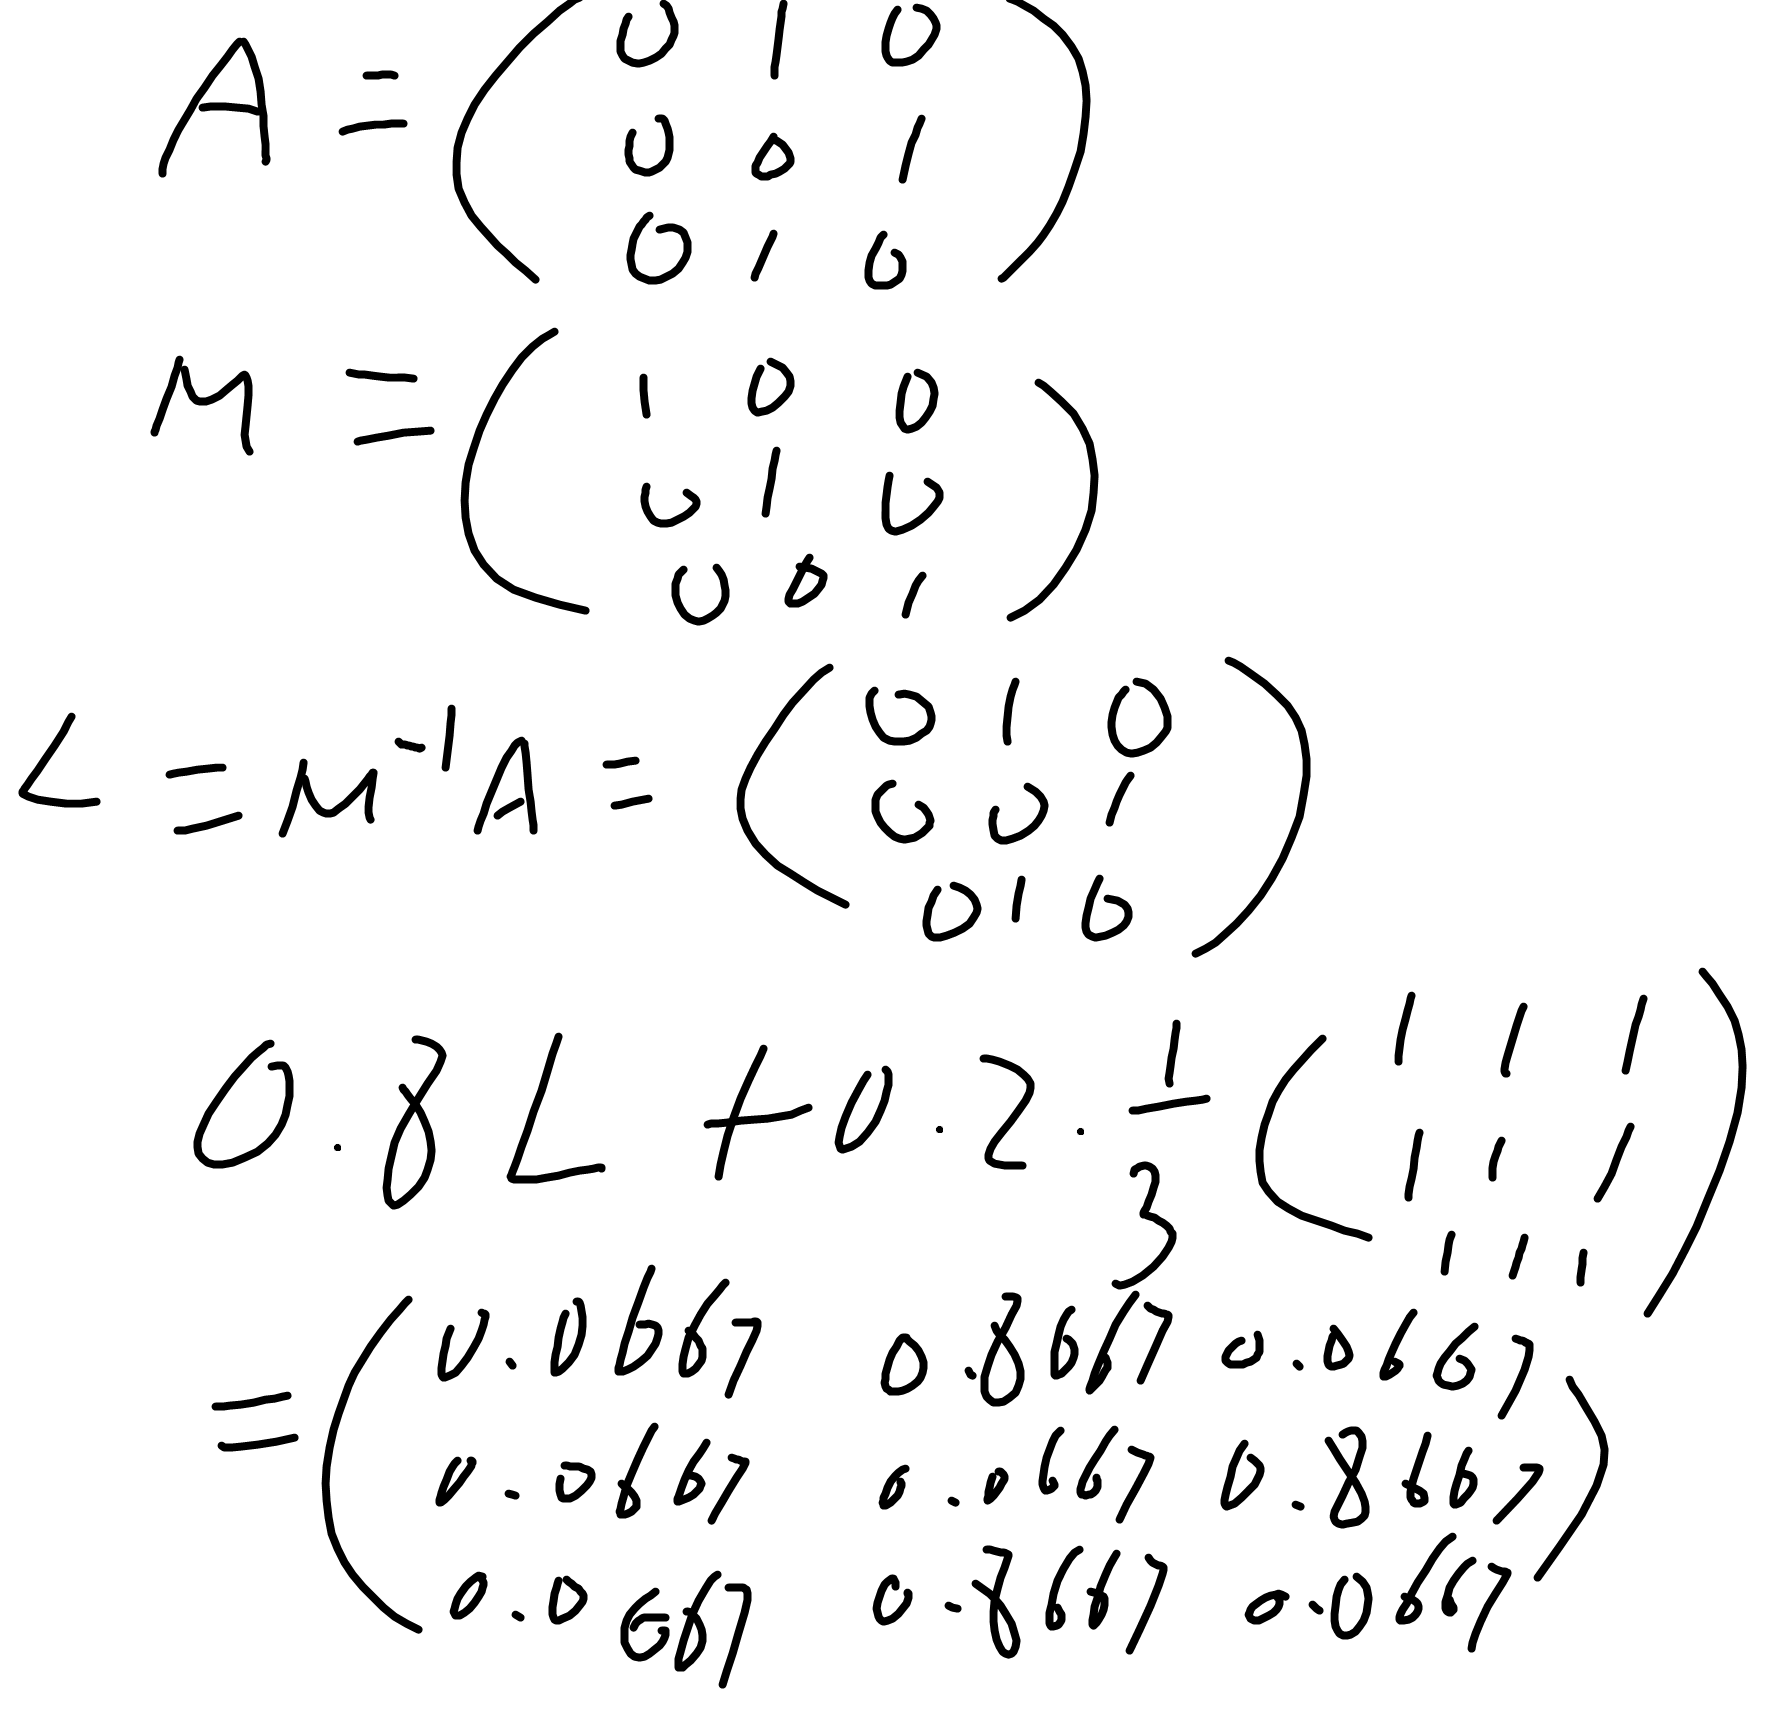 A = ( 0 1 0
0 0 1
0 1 0 )
M = ( 1 0 0
0 1 0
0 0 1 )
L = M⁻¹A = ( 0 1 0
0 0 1
0 1 0 )
0.8L + 0.2 · 1/3 ( 1 1 1
1 1 1
1 1 1 )
= ( 0.0667 0.8667 0.0667
0.0667 0.0667 0.8667
0.0667 0.8667 0.0667 )